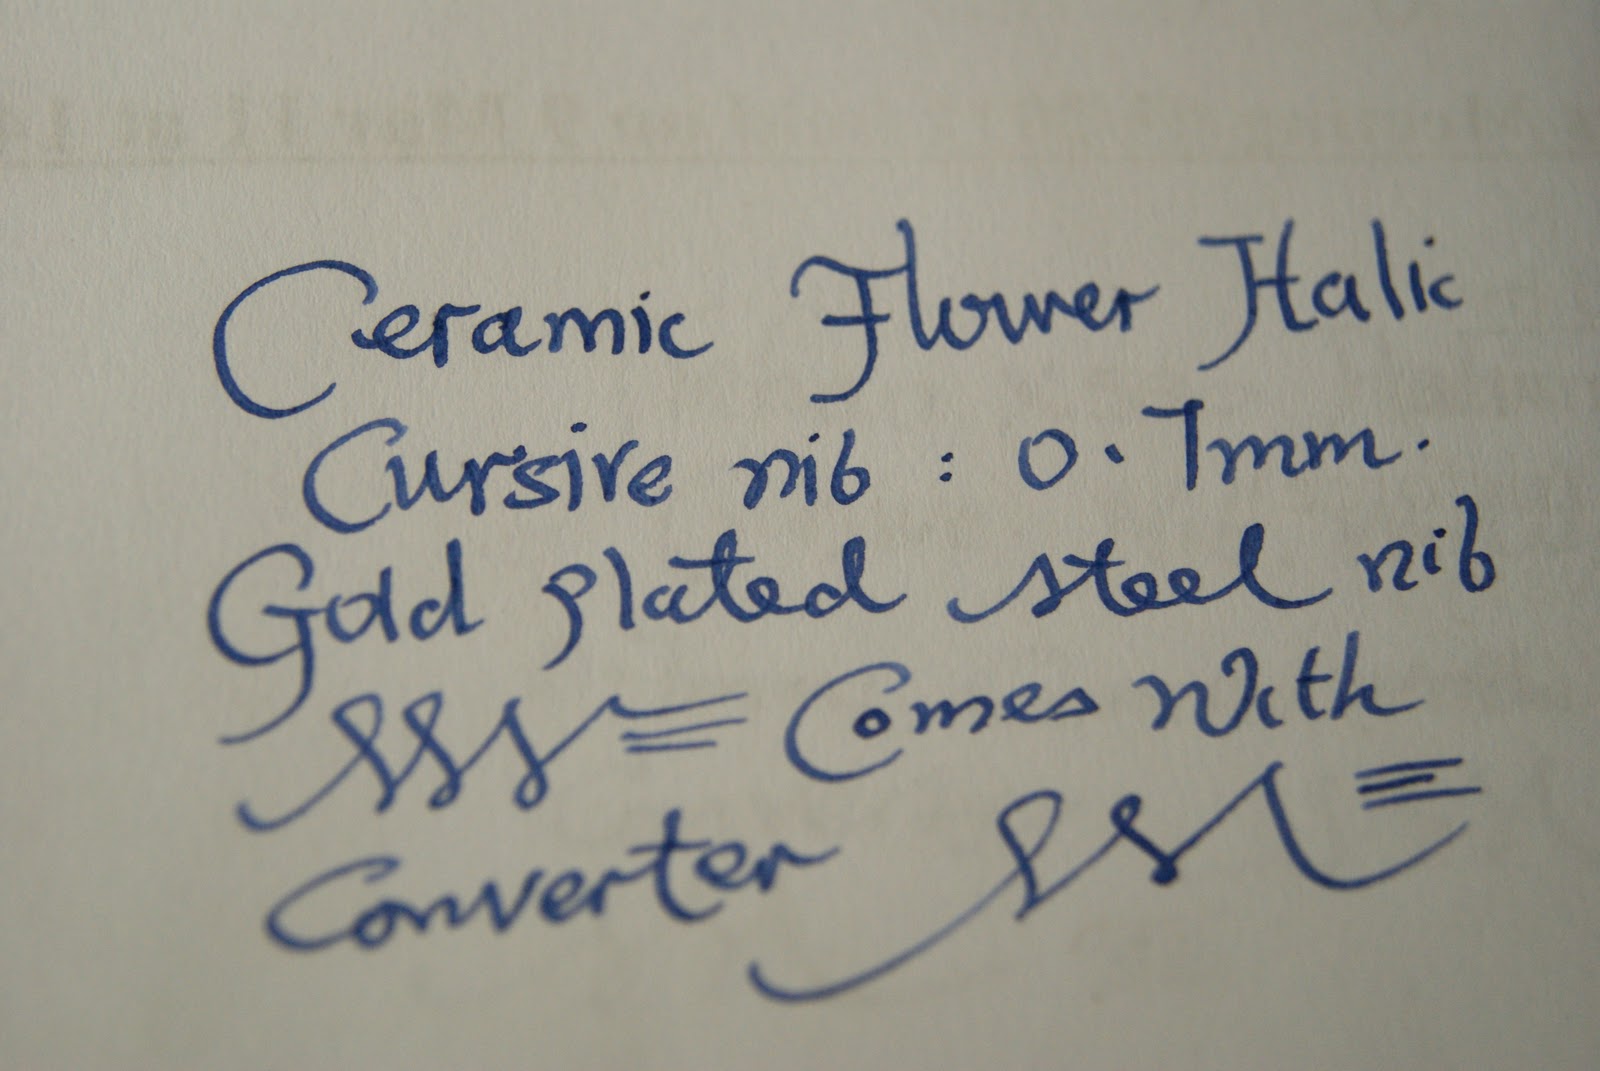 Ceramic Flower Italic
Cursive nib : 0.7mm.
Gold plated steel nib
Comes With
Converter